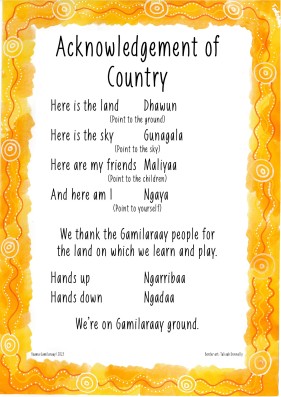 Acknowledgement of
Country
Here is the land Dhawun
(Point to the ground)
Here is the sky Gunagala
(Point to the sky)
Here are my friends Maliyaa
(Point to the children)
And here am I Ngaya
(Point to yourself)
We thank the Gamilaraay people for
the land on which we learn and play.
Hands up Ngarribaa
Hands down Ngadaa
We're on Gamilaraay ground.